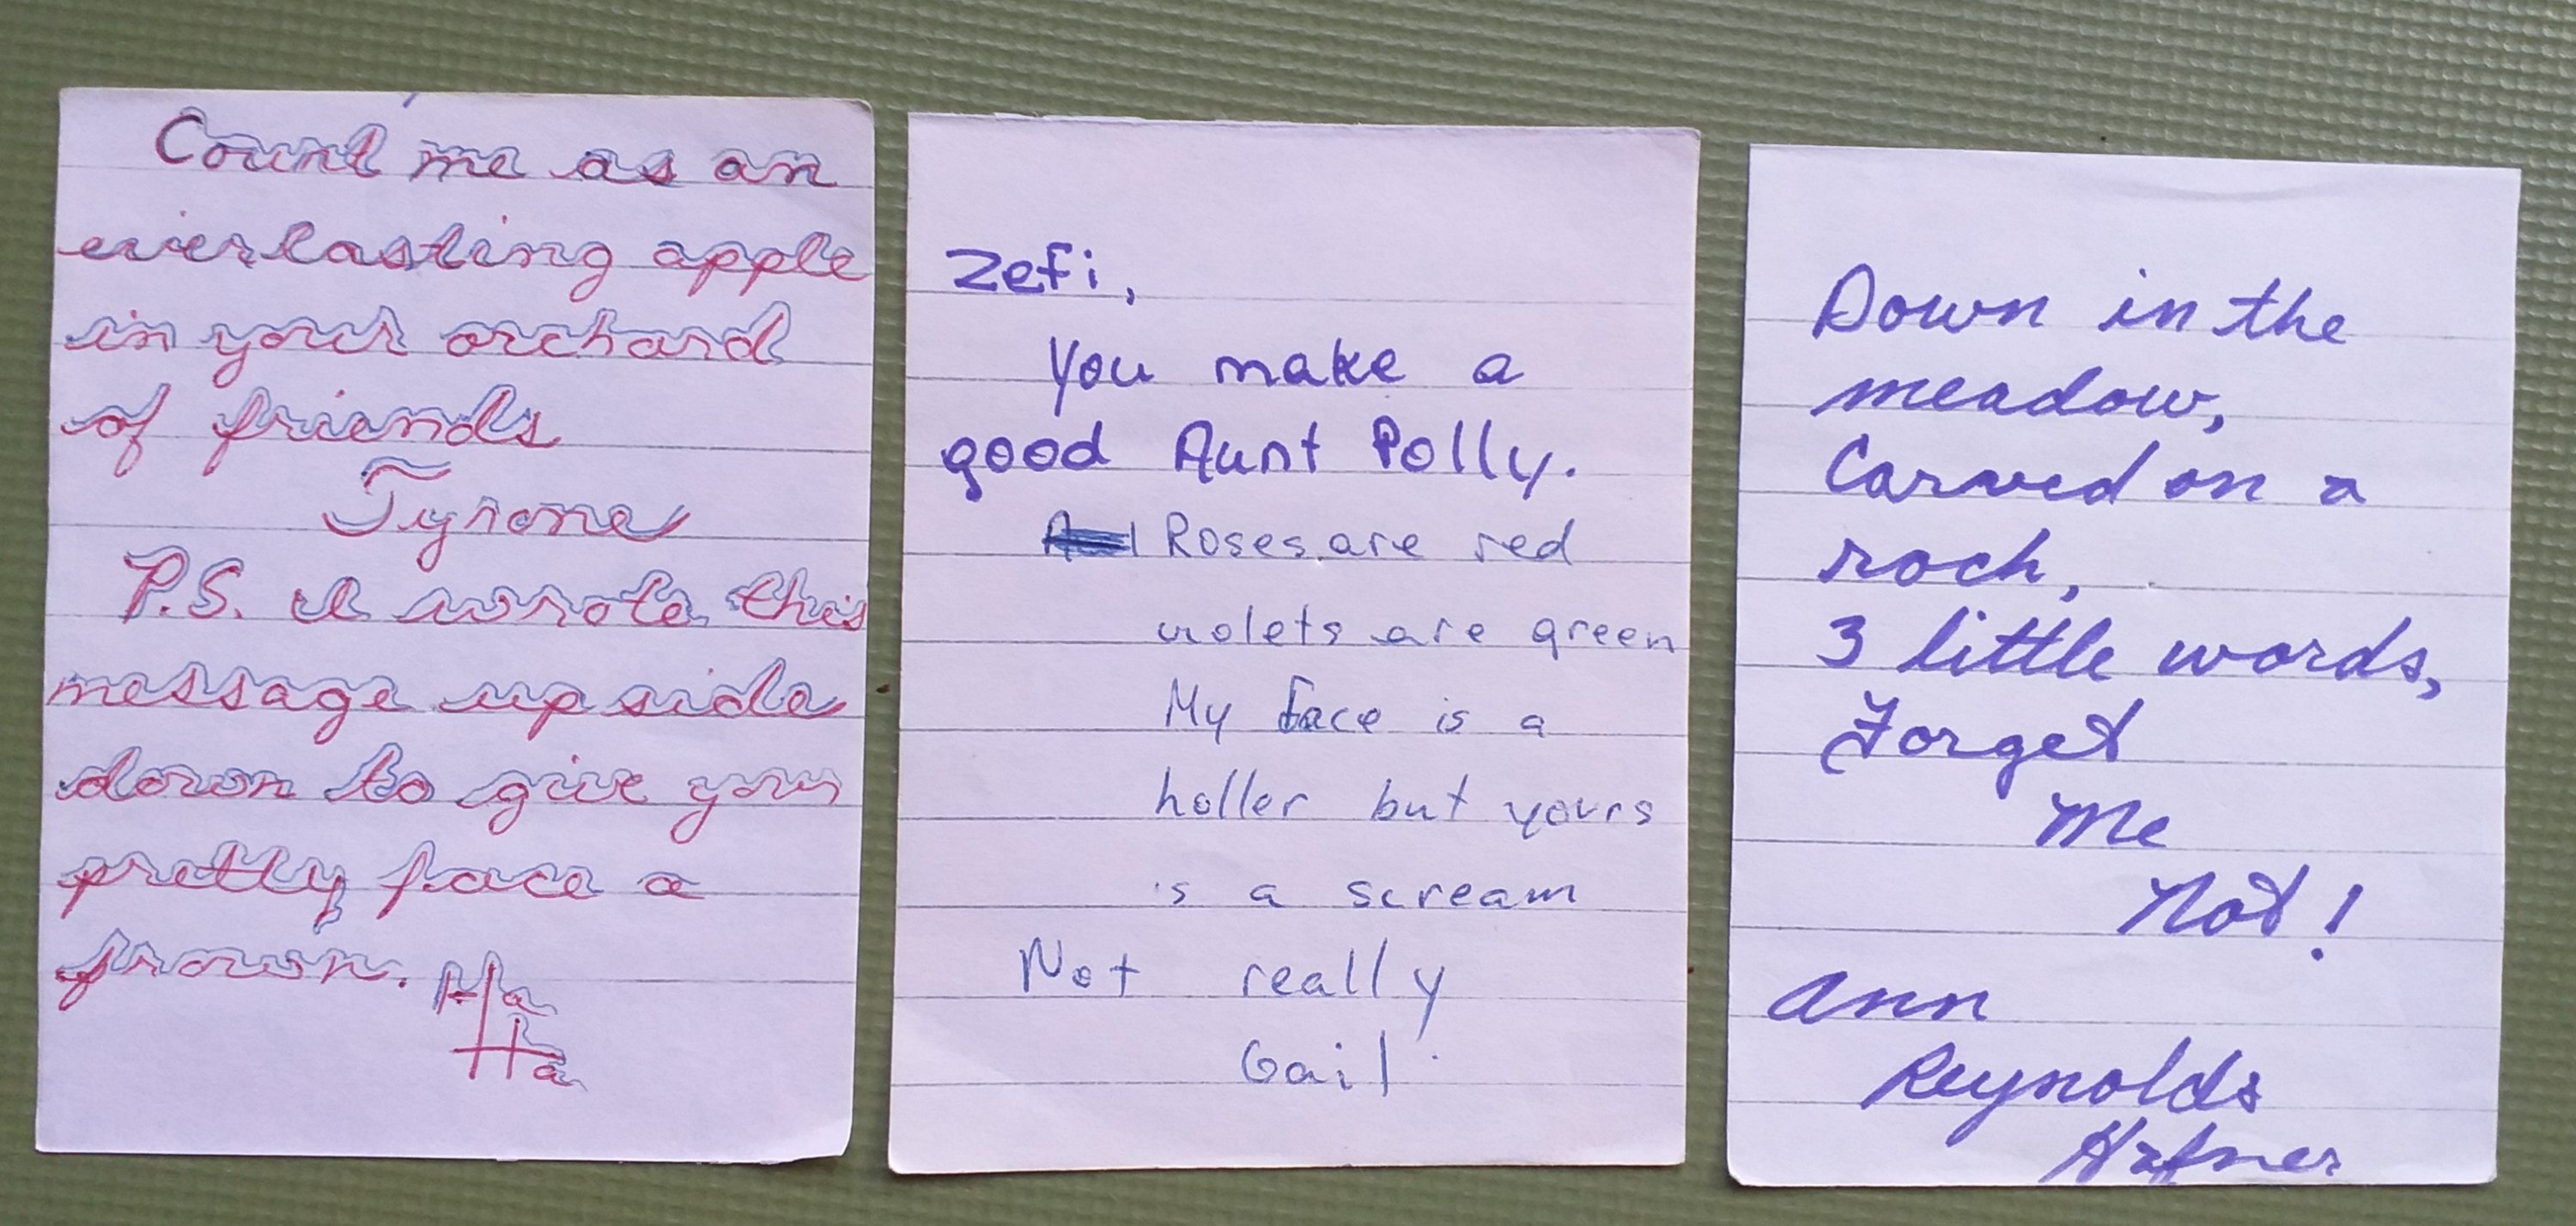 Count me as an
everlasting apple
in your orchard
of friends
Tyrone
P.S. I wrote this
message up side
down to give your
pretty face a
frown. Ha
Ha
Zefi,
You make a
good Aunt Polly.
Roses are red
violets are green
My face is a
holler but yours
is a scream
Not really
Gail
Down in the
meadow,
Carved on a
rock,
3 little words,
Forget
Me
Not!
Ann
Reynolds
Hafner